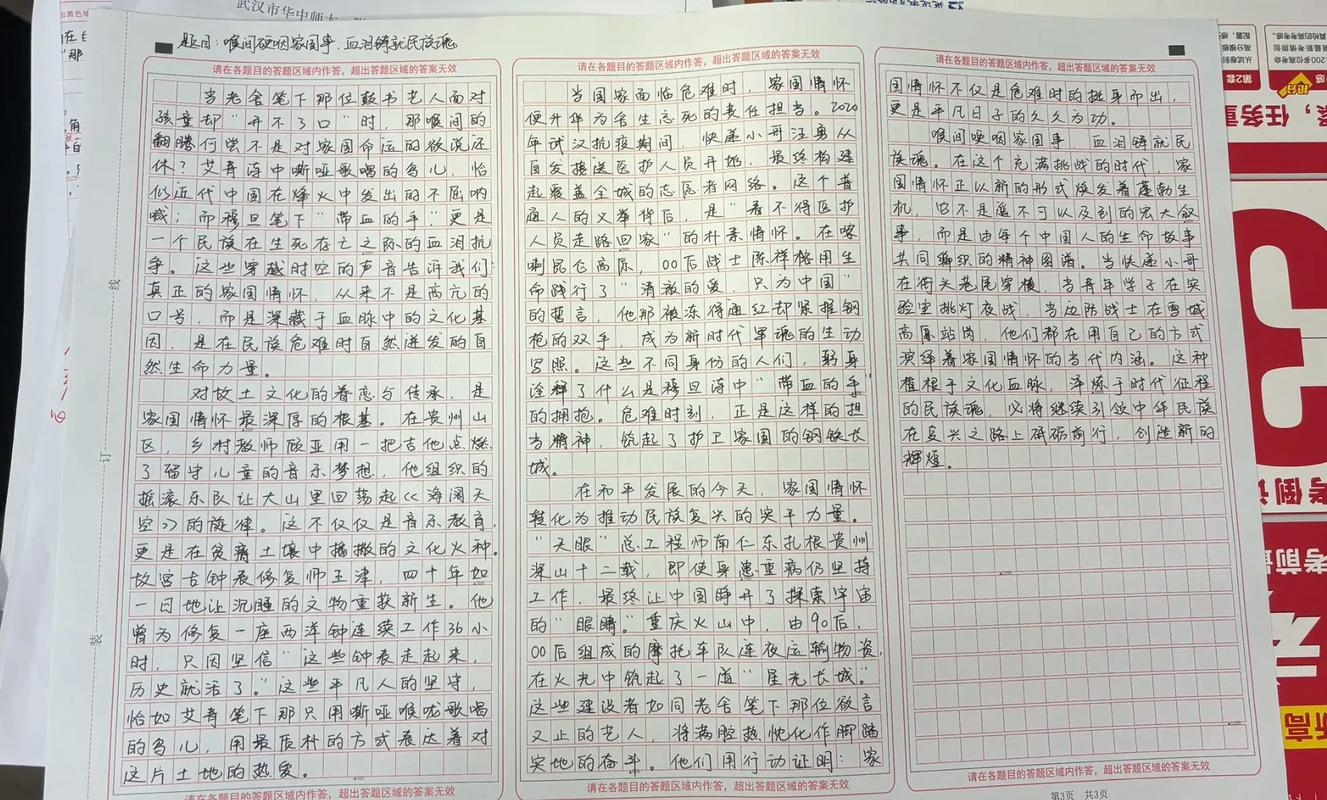 武汉市华中师大
题目：喉间哽咽家国事，血泪铸就民族魂
请在各题目的答题区域内作答，超出答题区域的答案无效
当老舍笔下那位鼓书艺人面对
孩童却“开不了口”时，那喉间的
翻腾何尝不是对家国命运的欲说还
休？艾青诗中嘶哑歌唱的鸟儿，恰
似近代中国在烽火中发出的不屈呐
喊；而穆旦笔下“带血的手”更是
一个民族在生死存亡之际的血泪抗
争。这些穿越时空的声音告诉我们：
真正的家国情怀，从来不是高亢的
口号，而是深藏于血脉中的文化基
因，是在民族危难时自然迸发的自
然生命力量。
对故土文化的眷恋与传承，是
家国情怀最深厚的根基。在贵州山
区，乡村教师顾亚用一把吉他点燃
了留守儿童的音乐梦想，他组织的
摇滚乐队让大山里回荡起《海阔天
空》的旋律。这不仅仅是音乐教育，
更是在贫瘠土壤中播撒的文化火种。
故宫古钟表修复师王津，四十年如
一日地让沉睡的文物重获新生。他
曾为修复一座西洋钟连续工作36小
时，只因坚信“这些钟表走起来，
历史就活了。”这些平凡人的坚守，
恰如艾青笔下那只用嘶哑喉咙歌唱
的鸟儿，用最质朴的方式表达着对
这片土地的热爱。
请在各题目的答题区域内作答，超出答题区域的答案无效
请在各题目的答题区域内作答，超出答题区域的答案无效
当国家面临危难时，家国情怀
便升华为舍生忘死的责任担当。2020
年武汉抗疫期间，快递小哥汪勇从
自发接送医护人员开始，最终构建
起覆盖全城的志愿者网络。这个普
通人的义举背后，是“看不得医护
人员走路回家”的朴素情怀。在喀
喇昆仑高原，00后战士陈祥榕用生
命践行了“清澈的爱，只为中国”
的誓言，他那被冻得通红却紧握钢
枪的双手，成为新时代军魂的生动
写照。这些不同身份的人们，躬身
诠释了什么是穆旦诗中“带血的手”
的拥抱。危难时刻，正是这样的担
当精神，筑起了护卫家国的钢铁长
城。
在和平发展的今天，家国情怀
转化为推动民族复兴的实干力量。
“天眼”总工程师南仁东扎根贵州
深山十二载，即使身患重病仍坚持
工作，最终让中国睁开了探索宇宙
的“眼睛。”重庆火山中，由90后、
00后组成的摩托车队连夜运输物资，
在火光中筑起了一道“星光长城。”
这些建设者如同老舍笔下那位欲言
又止的艺人，将满腔热忱化作脚踏
实地的奋斗。他们用行动证明：家
请在各题目的答题区域内作答，超出答题区域的答案无效
请在各题目的答题区域内作答，超出答题区域的答案无效
国情怀不仅是危难时的挺身而出，
更是平凡日子的久久为功。
喉间哽咽家国事，血泪铸就民
族魂。在这个充满挑战的时代，家
国情怀正以新的形式焕发着蓬勃生
机，它不是遥不可以及到的宏大叙
事，而是由每个中国人的生命故事
共同编织的精神图谱。当快递小哥
在街头巷尾穿梭，当青年学子在实
验室挑灯夜战，当边防战士在雪域
高原站岗，他们都在用自己的方式
演绎着家国情怀的当代内涵。这种
植根于文化血脉，淬炼于时代征程
的民族魂，必将继续引领中华民族
在复兴之路上砥砺前行，创造新的
辉煌。
请在各题目的答题区域内作答，超出答题区域的答案无效
第3页 共3页
线
订
装
第2套